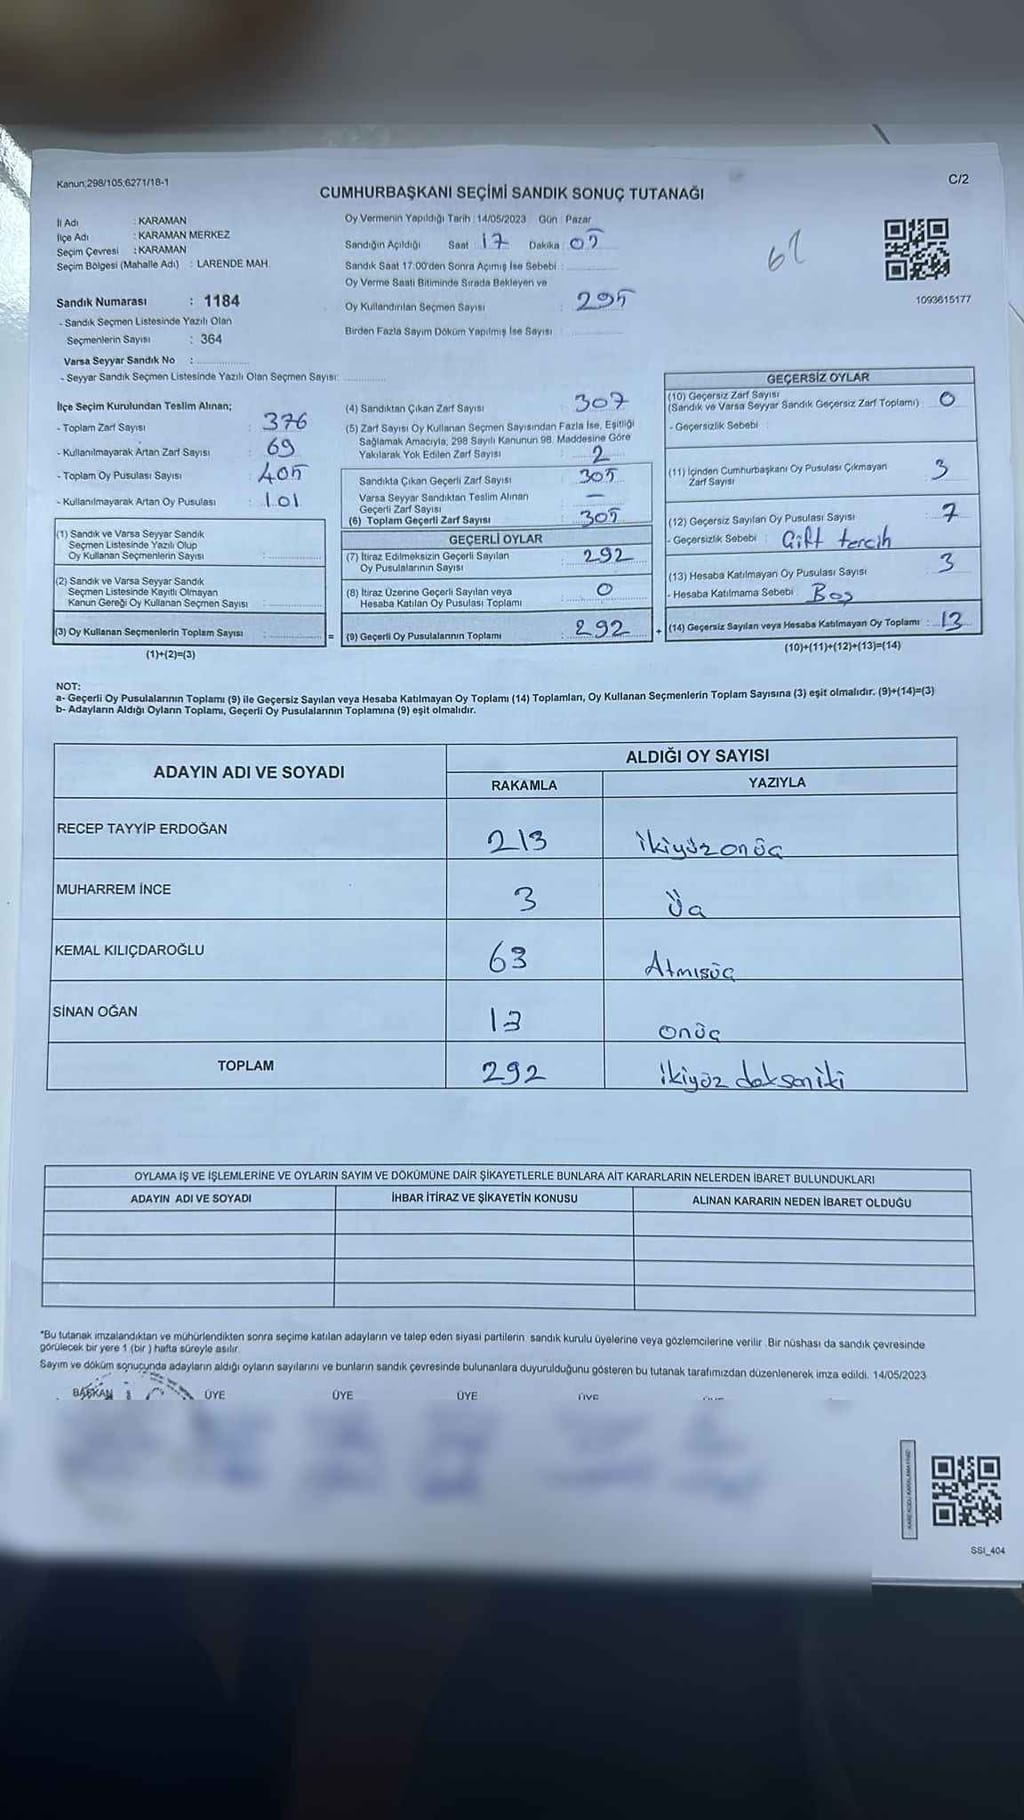 Kanun;298/105;6271/18-1
C/2
CUMHURBAŞKANI SEÇİMİ SANDIK SONUÇ TUTANAĞI
İl Adı : KARAMAN
İlçe Adı : KARAMAN MERKEZ
Seçim Çevresi : KARAMAN
Seçim Bölgesi (Mahalle Adı) : LARENDE MAH.
Oy Vermenin Yapıldığı Tarih : 14/05/2023 Gün : Pazar
Sandığın Açıldığı Saat : 17 Dakika : 05
Sandık Saat 17:00'den Sonra Açımış İse Sebebi :
Oy Verme Saati Bitiminde Sırada Bekleyen ve
Oy Kullandırılan Seçmen Sayısı : 295
Birden Fazla Sayım Döküm Yapılmış İse Sayısı :
1093615177
Sandık Numarası : 1184
- Sandık Seçmen Listesinde Yazılı Olan
Seçmenlerin Sayısı : 364
Varsa Seyyar Sandık No :
- Seyyar Sandık Seçmen Listesinde Yazılı Olan Seçmen Sayısı:
İlçe Seçim Kurulundan Teslim Alınan;
- Toplam Zarf Sayısı : 376
- Kullanılmayarak Artan Zarf Sayısı : 69
- Toplam Oy Pusulası Sayısı : 405
- Kullanılmayarak Artan Oy Pusulası : 101
(1) Sandık ve Varsa Seyyar Sandık
Seçmen Listesinde Yazılı Olup
Oy Kullanan Seçmenlerin Sayısı :
(2) Sandık ve Varsa Seyyar Sandık
Seçmen Listesinde Kayıtlı Olmayan
Kanun Gereği Oy Kullanan Seçmen Sayısı :
(3) Oy Kullanan Seçmenlerin Toplam Sayısı :
(1)+(2)=(3)
(4) Sandıktan Çıkan Zarf Sayısı : 307
(5) Zarf Sayısı Oy Kullanan Seçmen Sayısından Fazla İse, Eşitliği
Sağlamak Amacıyla, 298 Sayılı Kanunun 98. Maddesine Göre
Yakılarak Yok Edilen Zarf Sayısı : 2
Sandıkta Çıkan Geçerli Zarf Sayısı : 305
Varsa Seyyar Sandıktan Teslim Alınan
Geçerli Zarf Sayısı : –
(6) Toplam Geçerli Zarf Sayısı : 305
GEÇERLİ OYLAR
(7) İtiraz Edilmeksizin Geçerli Sayılan
Oy Pusulalarının Sayısı : 292
(8) İtiraz Üzerine Geçerli Sayılan veya
Hesaba Katılan Oy Pusulası Toplamı : 0
= (9) Geçerli Oy Pusulalarının Toplamı : 292 +
GEÇERSİZ OYLAR
(10) Geçersiz Zarf Sayısı
(Sandık ve Varsa Seyyar Sandık Geçersiz Zarf Toplamı) : 0
- Geçersizlik Sebebi :
(11) İçinden Cumhurbaşkanı Oy Pusulası Çıkmayan
Zarf Sayısı : 3
(12) Geçersiz Sayılan Oy Pusulası Sayısı : 7
- Geçersizlik Sebebi : Çift tercih
(13) Hesaba Katılmayan Oy Pusulası Sayısı : 3
- Hesaba Katılmama Sebebi : Boş
(14) Geçersiz Sayılan veya Hesaba Katılmayan Oy Toplamı : 13
(10)+(11)+(12)+(13)=(14)
NOT:
a- Geçerli Oy Pusulalarının Toplamı (9) ile Geçersiz Sayılan veya Hesaba Katılmayan Oy Toplamı (14) Toplamları, Oy Kullanan Seçmenlerin Toplam Sayısına (3) eşit olmalıdır. (9)+(14)=(3)
b- Adayların Aldığı Oyların Toplamı, Geçerli Oy Pusulalarının Toplamına (9) eşit olmalıdır.
ADAYIN ADI VE SOYADI
ALDIĞI OY SAYISI
RAKAMLA YAZIYLA
RECEP TAYYİP ERDOĞAN 213 ikiyüzonüç
MUHARREM İNCE 3 Üç
KEMAL KILIÇDAROĞLU 63 Atmışüç
SİNAN OĞAN 13 onüç
TOPLAM 292 ikiyüz doksaniki
OYLAMA İŞ VE İŞLEMLERİNE VE OYLARIN SAYIM VE DÖKÜMÜNE DAİR ŞİKAYETLERLE BUNLARA AİT KARARLARIN NELERDEN İBARET BULUNDUKLARI
ADAYIN ADI VE SOYADI İHBAR İTİRAZ VE ŞİKAYETİN KONUSU ALINAN KARARIN NEDEN İBARET OLDUĞU
*Bu tutanak imzalandıktan ve mühürlendikten sonra seçime katılan adayların ve talep eden siyasi partilerin sandık kurulu üyelerine veya gözlemcilerine verilir. Bir nüshası da sandık çevresinde
görülecek bir yere 1 (bir ) hafta süreyle asılır.
Sayım ve döküm sonucunda adayların aldığı oyların sayılarını ve bunların sandık çevresinde bulunanlara duyurulduğunu gösteren bu tutanak tarafımızdan düzenlenerek imza edildi. 14/05/2023
BAŞKAN ÜYE ÜYE ÜYE ÜYE
SSI_404